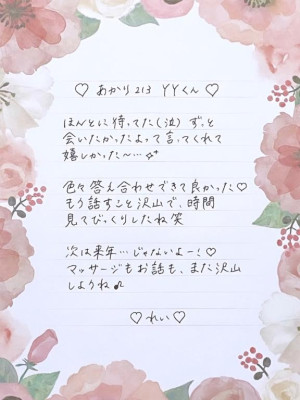 ♡ あかり213 YYくん ♡
ほんとに待ってた(泣) ずっと
会いたかったよって言ってくれて
嬉しかった〜…✧
色々答え合わせできて良かった♡
もう話すこと沢山で、時間
見てびっくりしたね笑
次は来年…じゃないよー!♡
マッサージもお話も、また沢山
しようね♪
♡ れい ♡